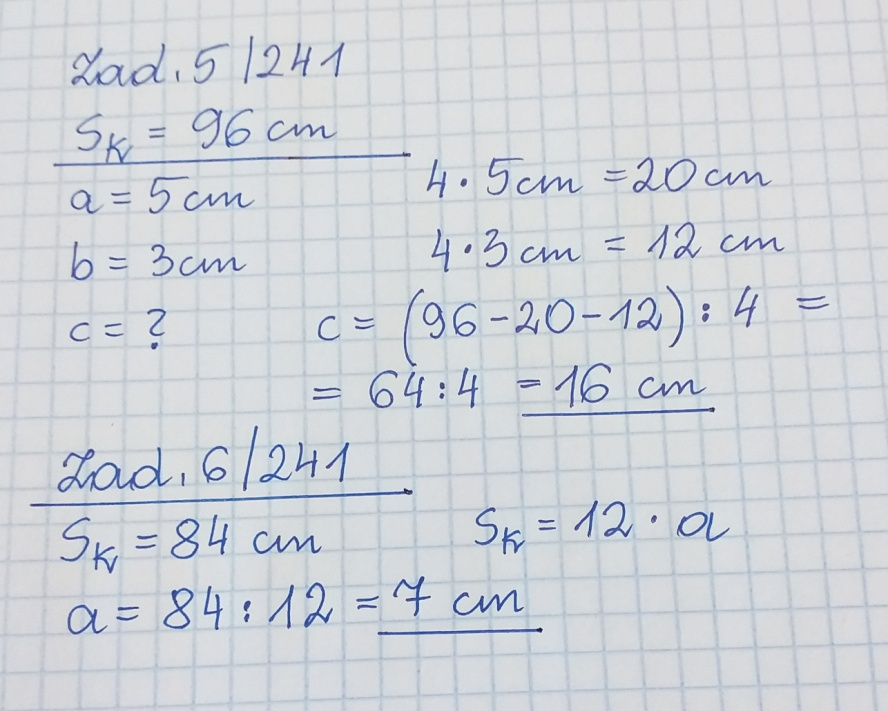 Zad. 5/241
Sk = 96 cm
a = 5 cm
4 · 5 cm = 20 cm
b = 3 cm
4 · 3 cm = 12 cm
c = ?
c = (96 - 20 - 12) : 4 =
= 64 : 4 = 16 cm
Zad. 6/241
Sk = 84 cm
Sk = 12 · a
a = 84 : 12 = 7 cm